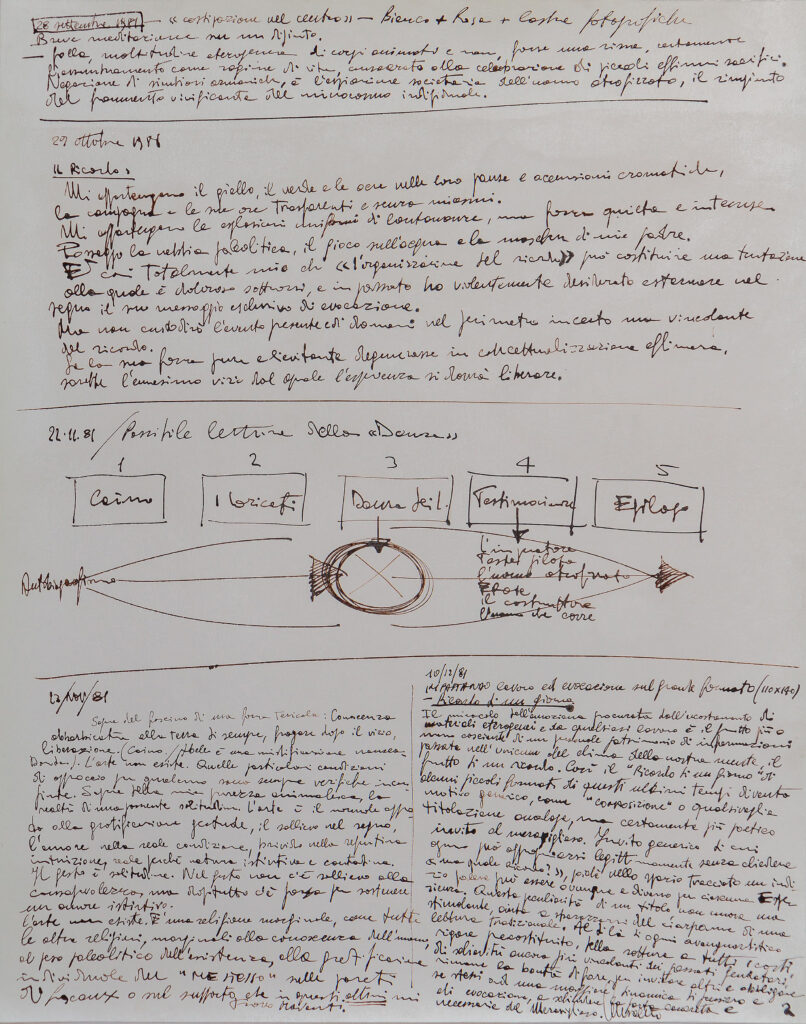 28 settembre 1981 — « costipazione nel centro » — Bianco + Rosa + lastre fotografiche
Breve meditazione su un dipinto.
— folla, moltitudine eterogenea di corpi animati e non, forse una rissa, certamente
l'assembramento come regime di vita, consacrato alla celebrazione di piccoli effimeri sacrifici.
Negazione di simbiosi armoniche, è l'espiazione societaria dell'uomo atrofizzato, il rimpianto
del frammento vivificante del microcosmo individuale.
29 ottobre 1981
« Il Ricordo »
Mi appartengono il giallo, il verde e le ocre nelle loro pause e accensioni cromatiche,
la campagna e le sue ore trasparenti e senza miasmi.
Mi appartengono le esplosioni uniformi di lontananze, una forza quieta e intensa.
Posseggo la rabbia paleolitica, il gioco sull'acqua e la maschera di mio padre.
È così totalmente mio che « l'organizzazione del ricordo » può costituire una tentazione
alla quale è doloroso sottrarsi, e in passato ho violentemente desiderato esternare nel
segno il suo messaggio esclusivo di evocazione.
Ma non custodirò l'evento presente e di domani nel perimetro incerto ma vincolante
del ricordo.
Se la sua forza pura e lievitante degenerasse in concettualizzazione effimera,
sarebbe l'ennesimo vizio dal quale l'esperienza si dovrà liberare.
22.11.81 / Possibile lettura della « Danza »
1 2 3 4 5
Caino
I Caricati
Danza
Testimonianza
Epilogo
Autobiografismo
L'inquatore
l'uomo atrofizzato
il costruttore
l'uomo che corre
27/NOV/81
Segno del fascino di una forza terricola: Conoscenza
abbarbicata alla terra di sempre, fragore dopo il vizio,
liberazione. (Caino / Abele è una mistificazione
Danza). L'arte non esiste. Quelle particolari condizioni
di approccio per qualcuno sono sempre verifiche
finte. Segno della mia purezza animalesca, la
realtà di una parente solitudine. L'arte è il normale
alla gratificazione gestuale, il sollievo nel segno,
l'amore nella sede condizione, privilegio nella
intuizione, reale perché natura istintiva e contadina.
Il gesto è solitudine. Nel gesto non c'è sollievo alla
consapevolezza, ma dopotutto c'è forza per sostenere
un amore istintivo.
L'arte non esiste. È una religione marginale, come tutte
le altre religioni, marginali alla conoscenza dell'uomo,
al peso paleolitico dell'esistenza, alla gratificazione
individuale del "ME STESSO" nelle pareti
di Lascaux o sul supporto che in questi attimi mi
trovo davanti.
10/12/81
lavoro ed evocazione sul grande formato (110x130)
Ricordo di un giorno
Il miracolo dell'emozione procurata dall'accostamento di
materiali eterogenei e da qualsiasi lavoro è il frutto più o
meno cosciente di un personale patrimonio di informazioni
passate nell'unicum del clima della nostra mente, il
frutto di un ricordo. Così il "Ricordo di un giorno" di
alcuni piccoli formati di questi ultimi tempi diventa
motivo generico, come "composizione" o qualsivoglia
titolazione analoga, ma certamente più poetico
invito al meraviglioso. Invito generico di cui
ognuno può appropriarsi legittimamente senza chiedere
« ma quale ricordo? », poiché nello spazio tracciato un indi-
può essere ovunque e diverso per ciascuna espe-
rienza. Questa peculiarità di un titolo, non ancora ma
stimolante, aiuta a sbarazzarsi del ciarpame di una
lettura tradizionale. Al di là di ogni avanguardistico
rigore precostituito, della rottura a tutti i costi,
di schiavitù ancora più vincolanti dei passati
rimane la bontà di fare, per invitare altri e obbligare
se stessi ad una maggiore dinamica di pensiero e
di evocazione, a schiudere la porta concreta e
necessaria del Meraviglioso.
2